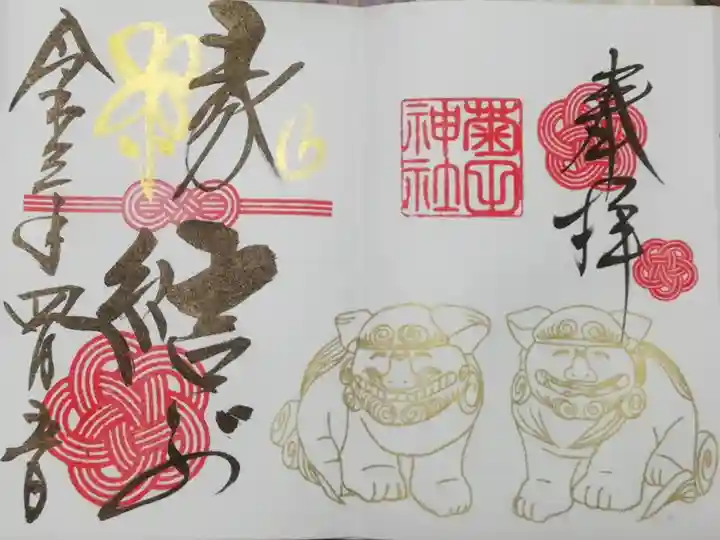 奉拝
菊田
神社
縁結び
令和三年四月